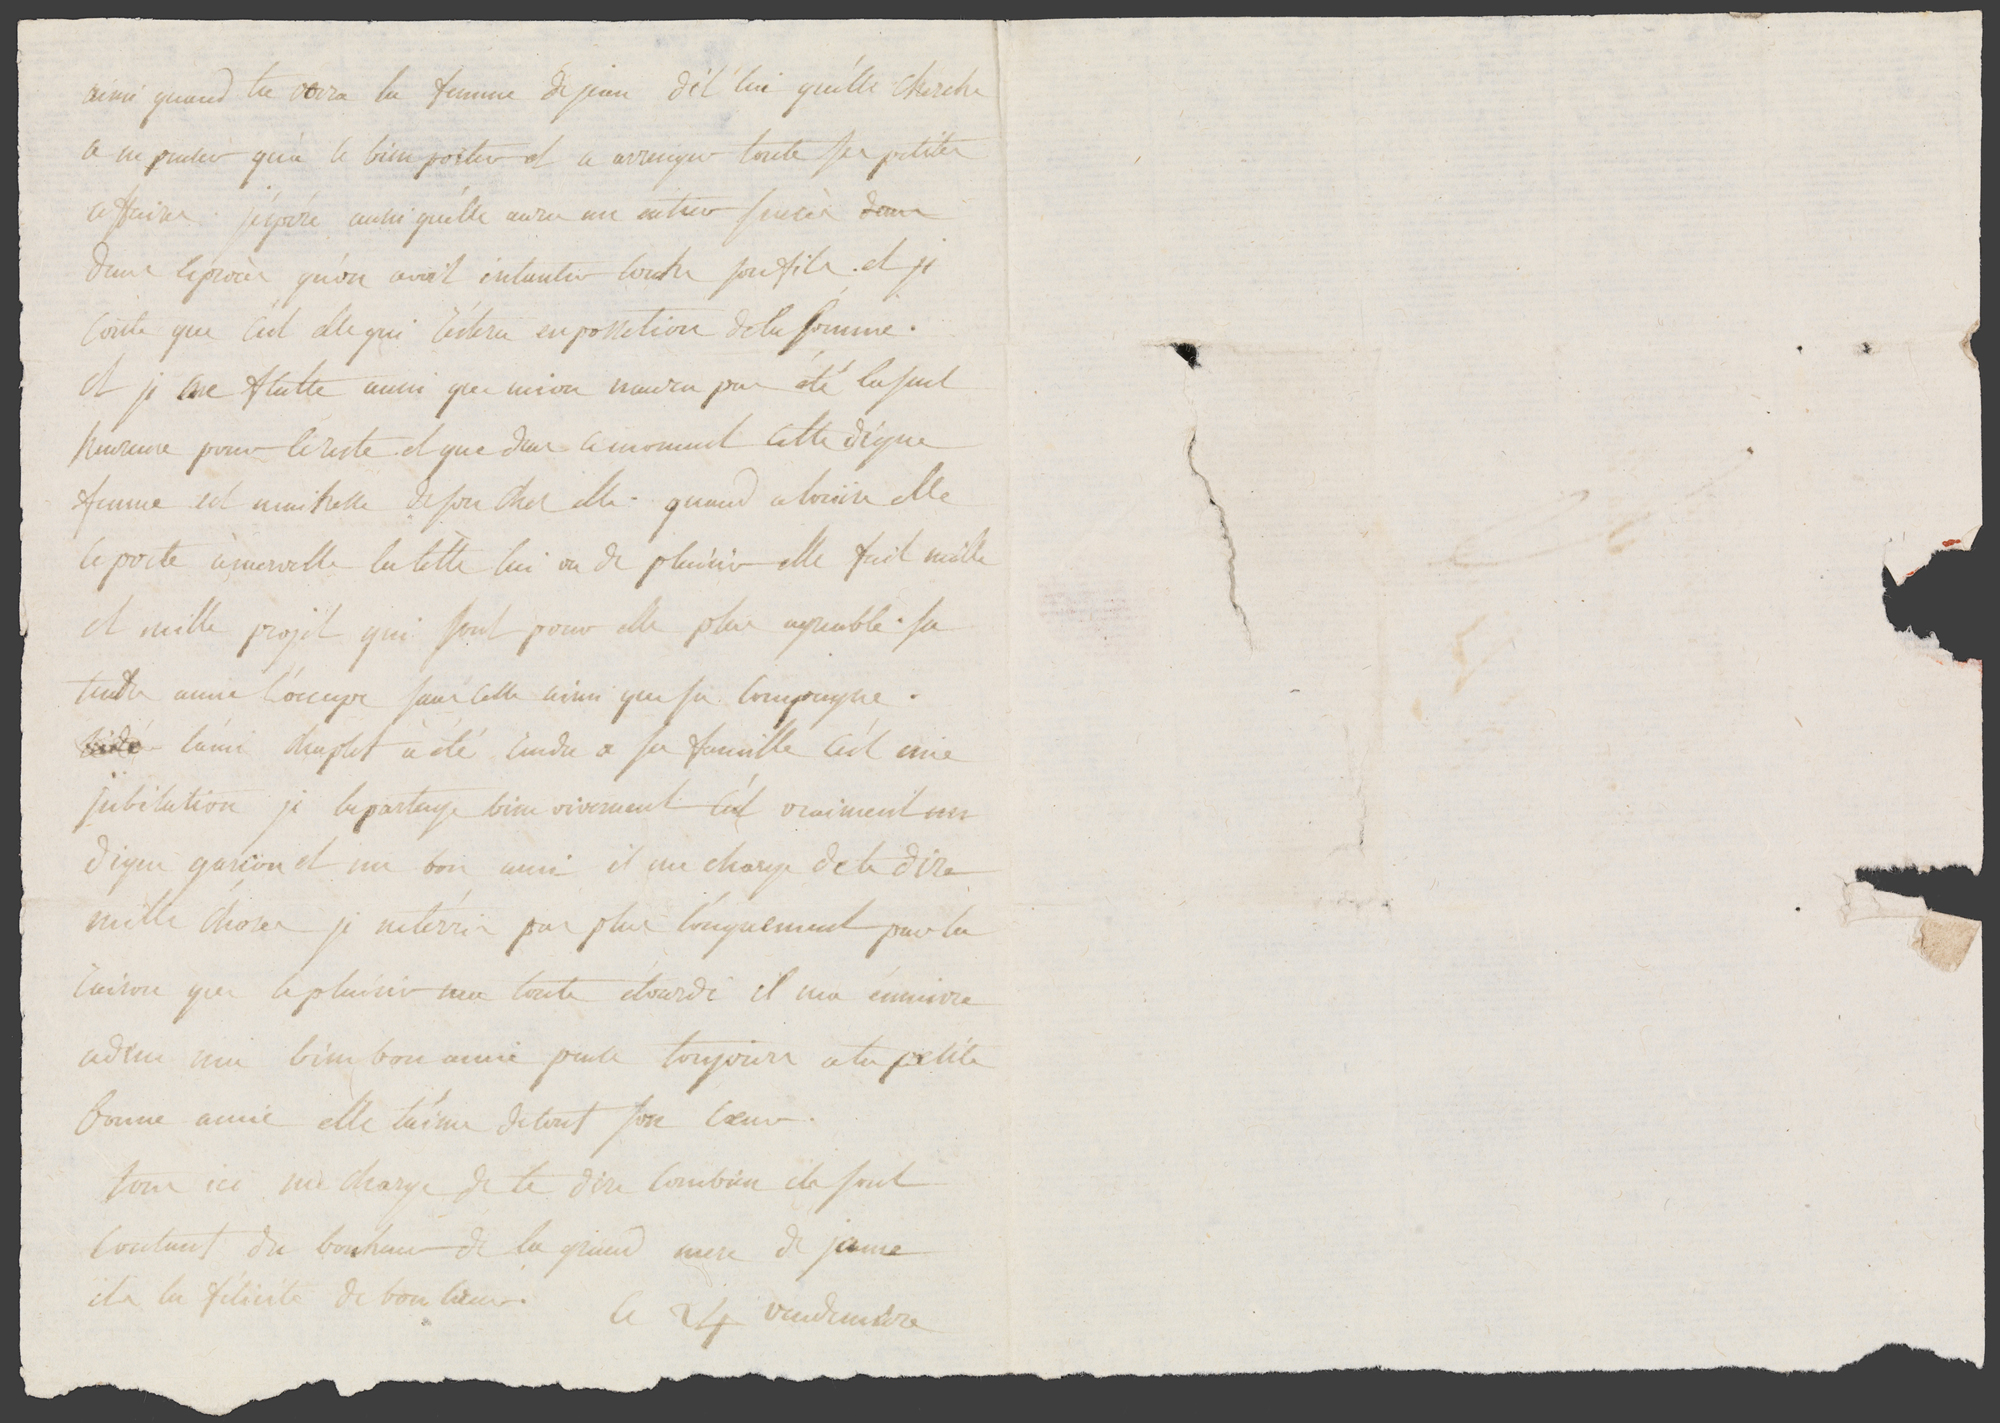 ainsi quand tu vera la femme de jean dit lui quelle cherche
a ne penser qua ce bien porter et a arranger toute ses petites
affaires. j'espére aussi quelle aura un entier succès dans
dans le procès qu'on avoit intenter contre son fils. et je
conte que c'est elle qui restera en possetion de la somme.
et je me flatte aussi que naura pas été la seul
heureuse pour le reste et que dans ce moment cette digne
femme est maitresse de son chez elle. quand a loisire elle
ce porte a mervelle la tette lui va de plaisir elle fait mille
et mille projet qui sont pour elle plus agreable. sa
tendre amie l'occupe sans cesse ainsi que sa compagne.
l'ami chaplet à été rendu a sa famille c'est une
jubilation je la partage bien vivement c'est vraiment un
digne garcon et un bon ami il me charge de te dire
mille choses je ne t'écris pas plus longuement par la
raison que le plaisir ma toute étourdi il ma énnivre
adieu mon bien bon amie pense toujours a ta petite
bonne amie elle t'aime de tout son cœur.
tous ici me charge de te dire combien ils sont
contant du bonheur de la grand mere de jaine
ils la félicite de bon cœur. le 24 vendemiere